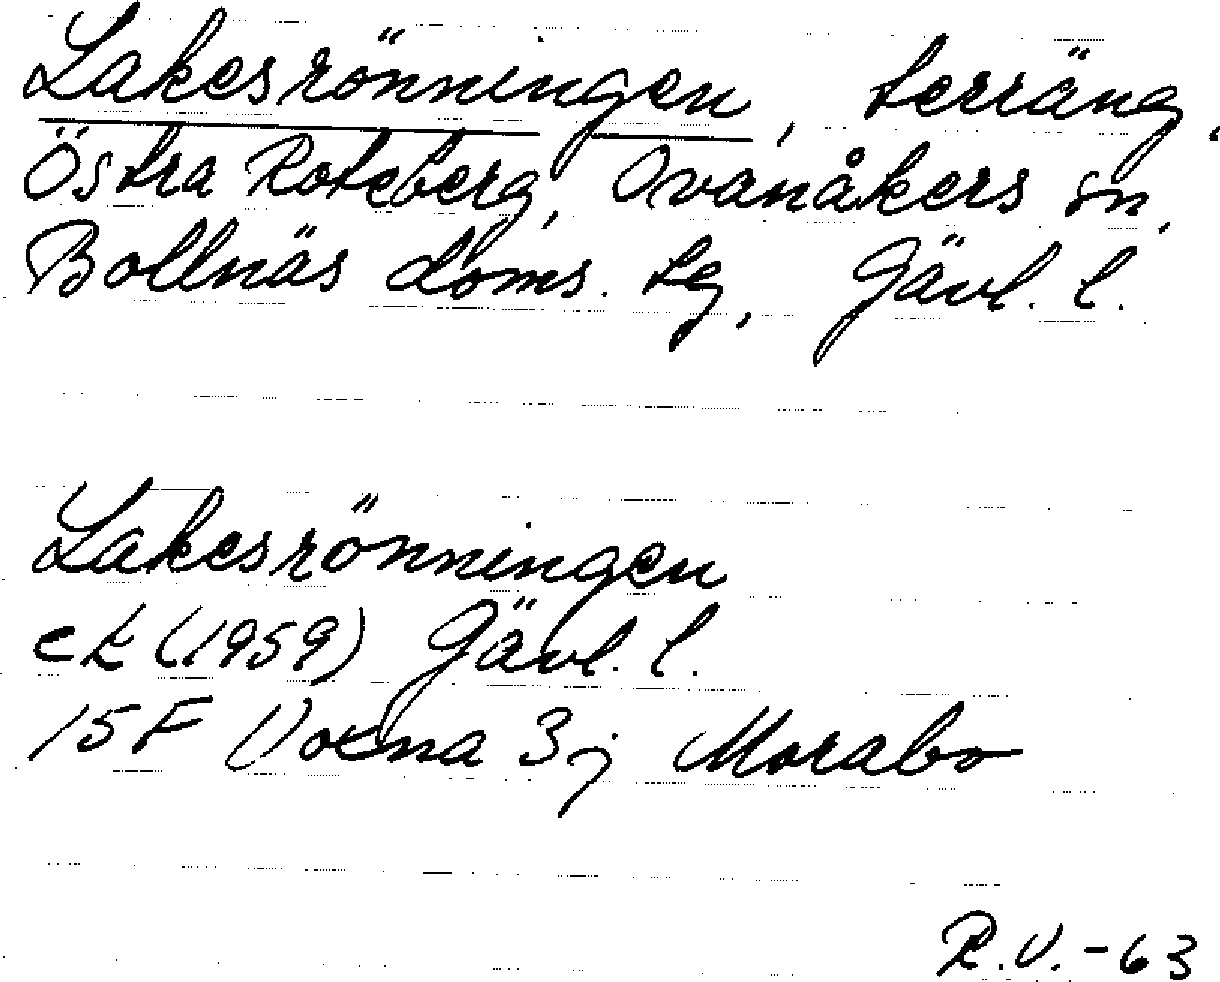 Lakesrönningen, terräng,
Östra Roteberg, Ovanåkers sn,
Bollnäs doms. tg, Gävl. l.
Lakesrönningen
ek (1959) Gävl. l.
15F Voxna 3j Morabo
R.V. -63